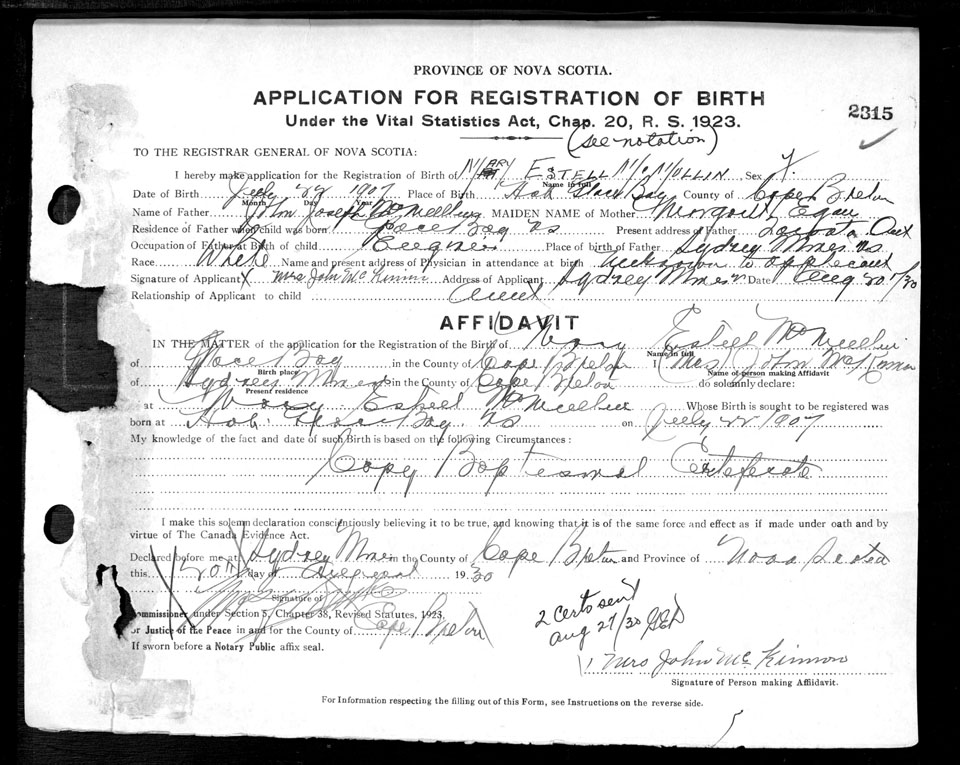 PROVINCE OF NOVA SCOTIA.
APPLICATION FOR REGISTRATION OF BIRTH
2315
Under the Vital Statistics Act, Chap. 20, R. S. 1923.
(see notation)
TO THE REGISTRAR GENERAL OF NOVA SCOTIA:
I hereby make application for the Registration of Birth of MARY ESTELL McMULLIN Sex F.
Name in full
Date of Birth July 22 1907 Place of Birth Glace Bay County of Cape Breton
Month Day Year
Name of Father John Joseph McMullin MAIDEN NAME of Mother Margaret Egan
Residence of Father when child was born Glace Bay NS Present address of Father
Occupation of Father at Birth of child Place of birth of Father Sydney Mines NS
Race White Name and present address of Physician in attendance at birth unknown to applicant
Signature of Applicant X Mrs John McKinnon Address of Applicant Sydney Mines NS Date Aug 20/30
Relationship of Applicant to child Aunt
AFFIDAVIT
IN THE MATTER of the application for the Registration of the Birth of Mary Estell McMullin
Name in full
of Glace Bay in the County of Cape Breton I (Mrs) John McKinnon
Birth place Name of person making Affidavit
of Sydney Mines in the County of Cape Breton do solemnly declare:
Present residence
at Mary Estell McMullin Whose Birth is sought to be registered was
born at Glace Bay NS on July 22 1907
My knowledge of the fact and date of such Birth is based on the following Circumstances:
Copy Baptismal Certificate
I make this solemn declaration conscientiously believing it to be true, and knowing that it is of the same force and effect as if made under oath and by
virtue of The Canada Evidence Act.
Declared before me at Sydney Mines in the County of Cape Breton and Province of Nova Scotia
this 20th day of August 1930
Signature of
Commissioner under Section 5, Chapter 38, Revised Statutes, 1923,
or Justice of the Peace in and for the County of Cape Breton
If sworn before a Notary Public affix seal.
2 Certs sent
Aug 27/30
Mrs John McKinnon
Signature of Person making Affidavit.
For Information respecting the filling out of this Form, see Instructions on the reverse side.